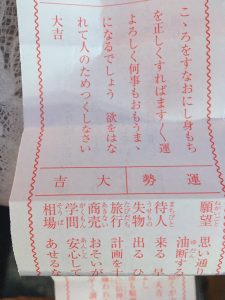 こゝろをすなおにし身もち
を正しくすればますく運
よろしく何事もおもうまゝ
になるでしょう 欲をはな
れて人のためつくしなさい
大吉
運勢大吉
願望 思い通り
油断する
待人 来る 早
失物 出る ひ
旅行 計画を十
商売 おそいが
学問 安心して
相場 あせるな